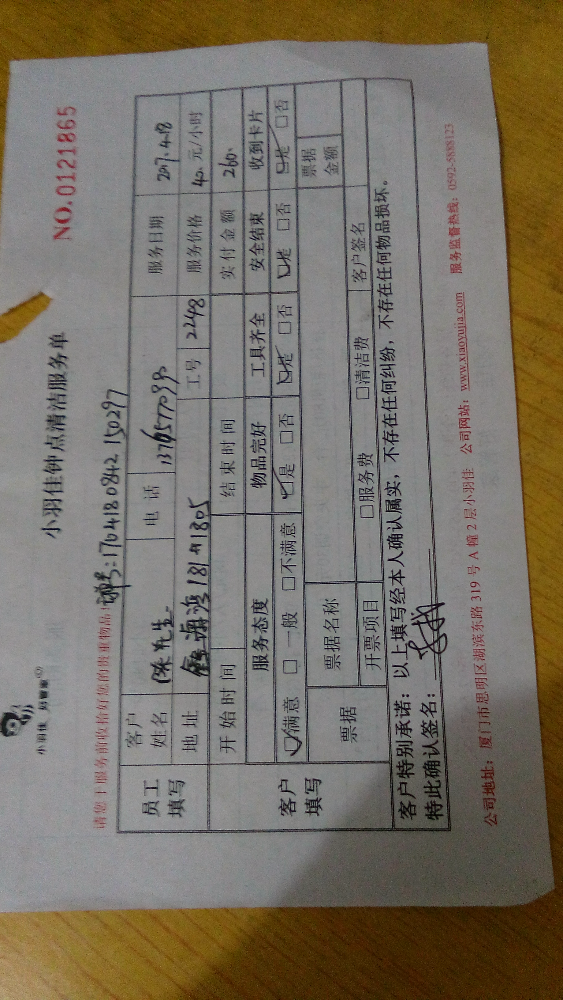 小羽佳 好管家
小羽佳钟点清洁服务单
NO.0121865
请您于服务前收拾好您的贵重物品!
单号:1704180842150297
员工填写 客户姓名 陈先生 电话 服务日期 2017.4.18
地址 海湾 1805 工号 2248 服务价格 40 元/小时
客户填写 开始时间 结束时间 实付金额 260.
服务态度 物品完好 工具齐全 安全结束 收到卡片
☑满意 □一般 □不满意 ☑是 □否 ☑是 □否 ☑是 □否 ☑是 □否
票据 票据名称 票据金额
开票项目 □服务费 □清洁费 客户签名
客户特别承诺:以上填写经本人确认属实,不存在任何纠纷,不存在任何物品损坏。
特此确认签名:
公司地址:厦门市思明区湖滨东路 319 号 A 幢 2 层小羽佳 公司网站:www.xiaoyujia.com 服务监督热线:0592-5888123